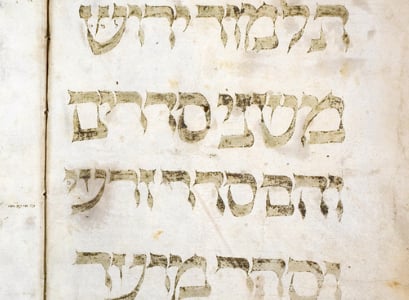 תלמוד ירוש
משני סדרים
והם סדר זרע
וסדר מועד